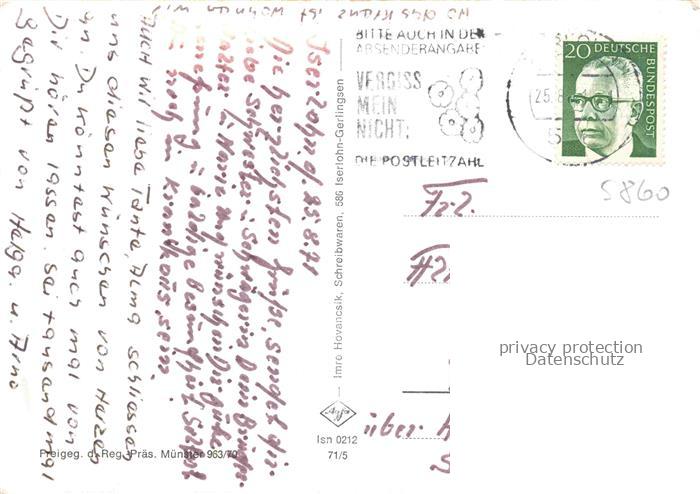 wo das Kreuz ist wohnen wir
Iserlohn, d. 25.8.71
Die herzlichsten Grüße sendet dir
liebe Schwester u. Schwägerin Dein Bruder
Walter u. Marie und wünschen Dir gute
u. baldige Besundheit
noch im Krankenhaus sein.
Auch wir liebe Tante, Alma schliessen
uns diesen Wünschen von Herzen
an. Du könntest auch mal von
Dir hören lassen. sei tausandmal
Gegrüßt von Helga u. Arno
Freigeg. d. Reg.-Präs. Münster 963/70
Imre Hovancsik, Schreibwaren, 586 Iserlohn-Gerlingsen
Agfa
Isn 0212
71/5
BITTE AUCH IN DER
ABSENDERANGABE
VERGISS
MEIN
NICHT:
DIE POSTLEITZAHL
25.8
20 DEUTSCHE
BUNDESPOST
5860
über
privacy protection
Datenschutz